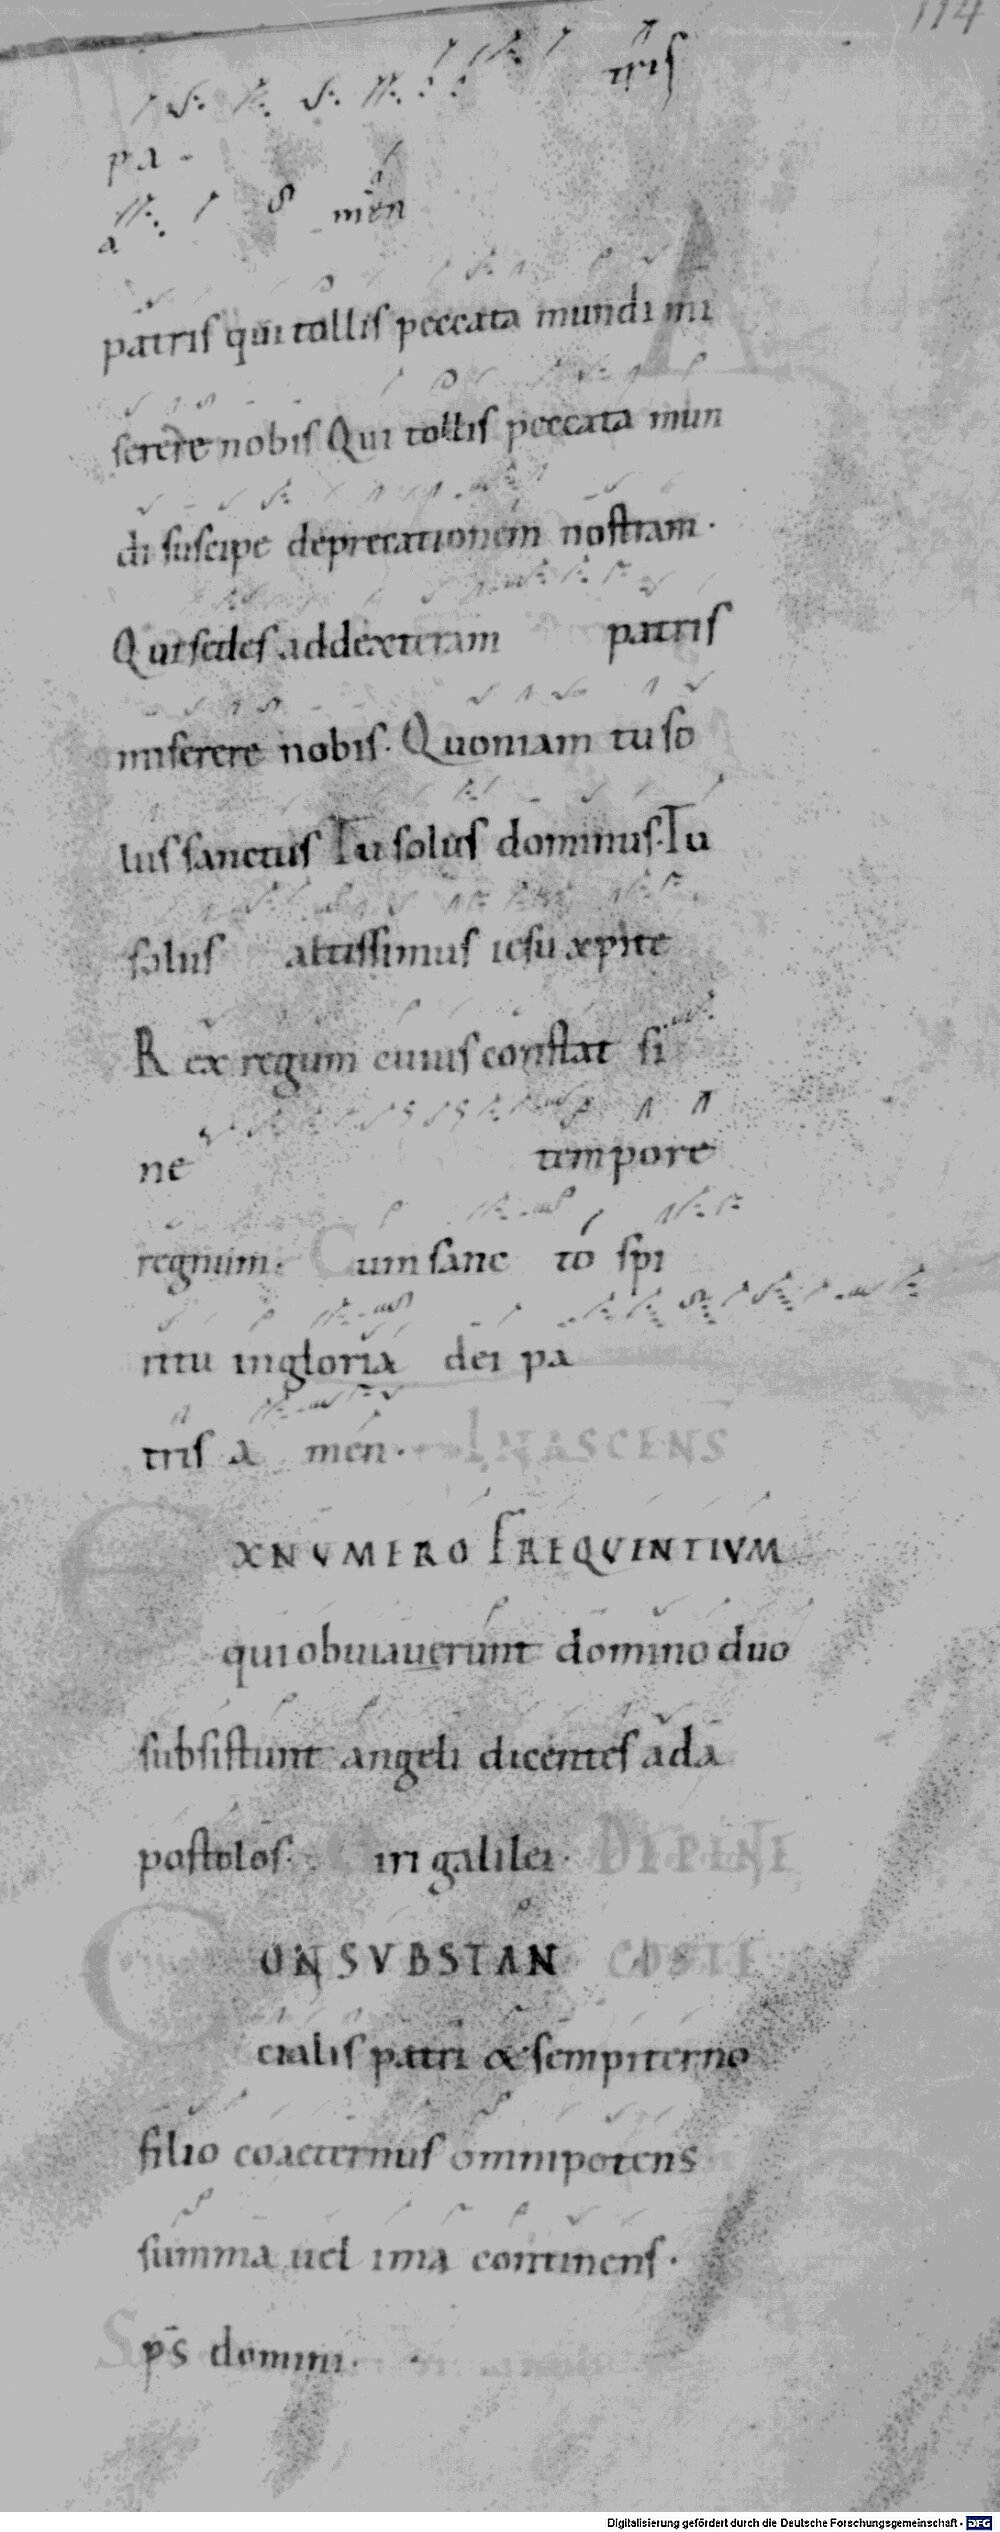 114
tris
pa
a men
patris qui tollis peccata mundi mi
serere nobis Qui tollis peccata mun
di suscipe deprecationem nostram.
Qui sedes ad dexteram patris
miserere nobis. Quoniam tu so
lus sanctus Tu solus dominus. Tu
solus altissimus iesu xpite
Rex regum cuius constat si
ne tempore
regnum. Cum sanc to spi
ritu in gloria dei pa
tris a men. IN ASCENS
EX NVMERO FREQVINTIVM
qui obuiauerunt domino duo
subsistunt angeli dicentes ad a
postolos. iri galilei. DIPINI
CONSVBSTAN COSTE
cialis patri & sempiterno
filio coaeternus omnipotens
summa uel ima continens.
Sps domini.
Digitalisierung gefördert durch die Deutsche Forschungsgemeinschaft - DFG